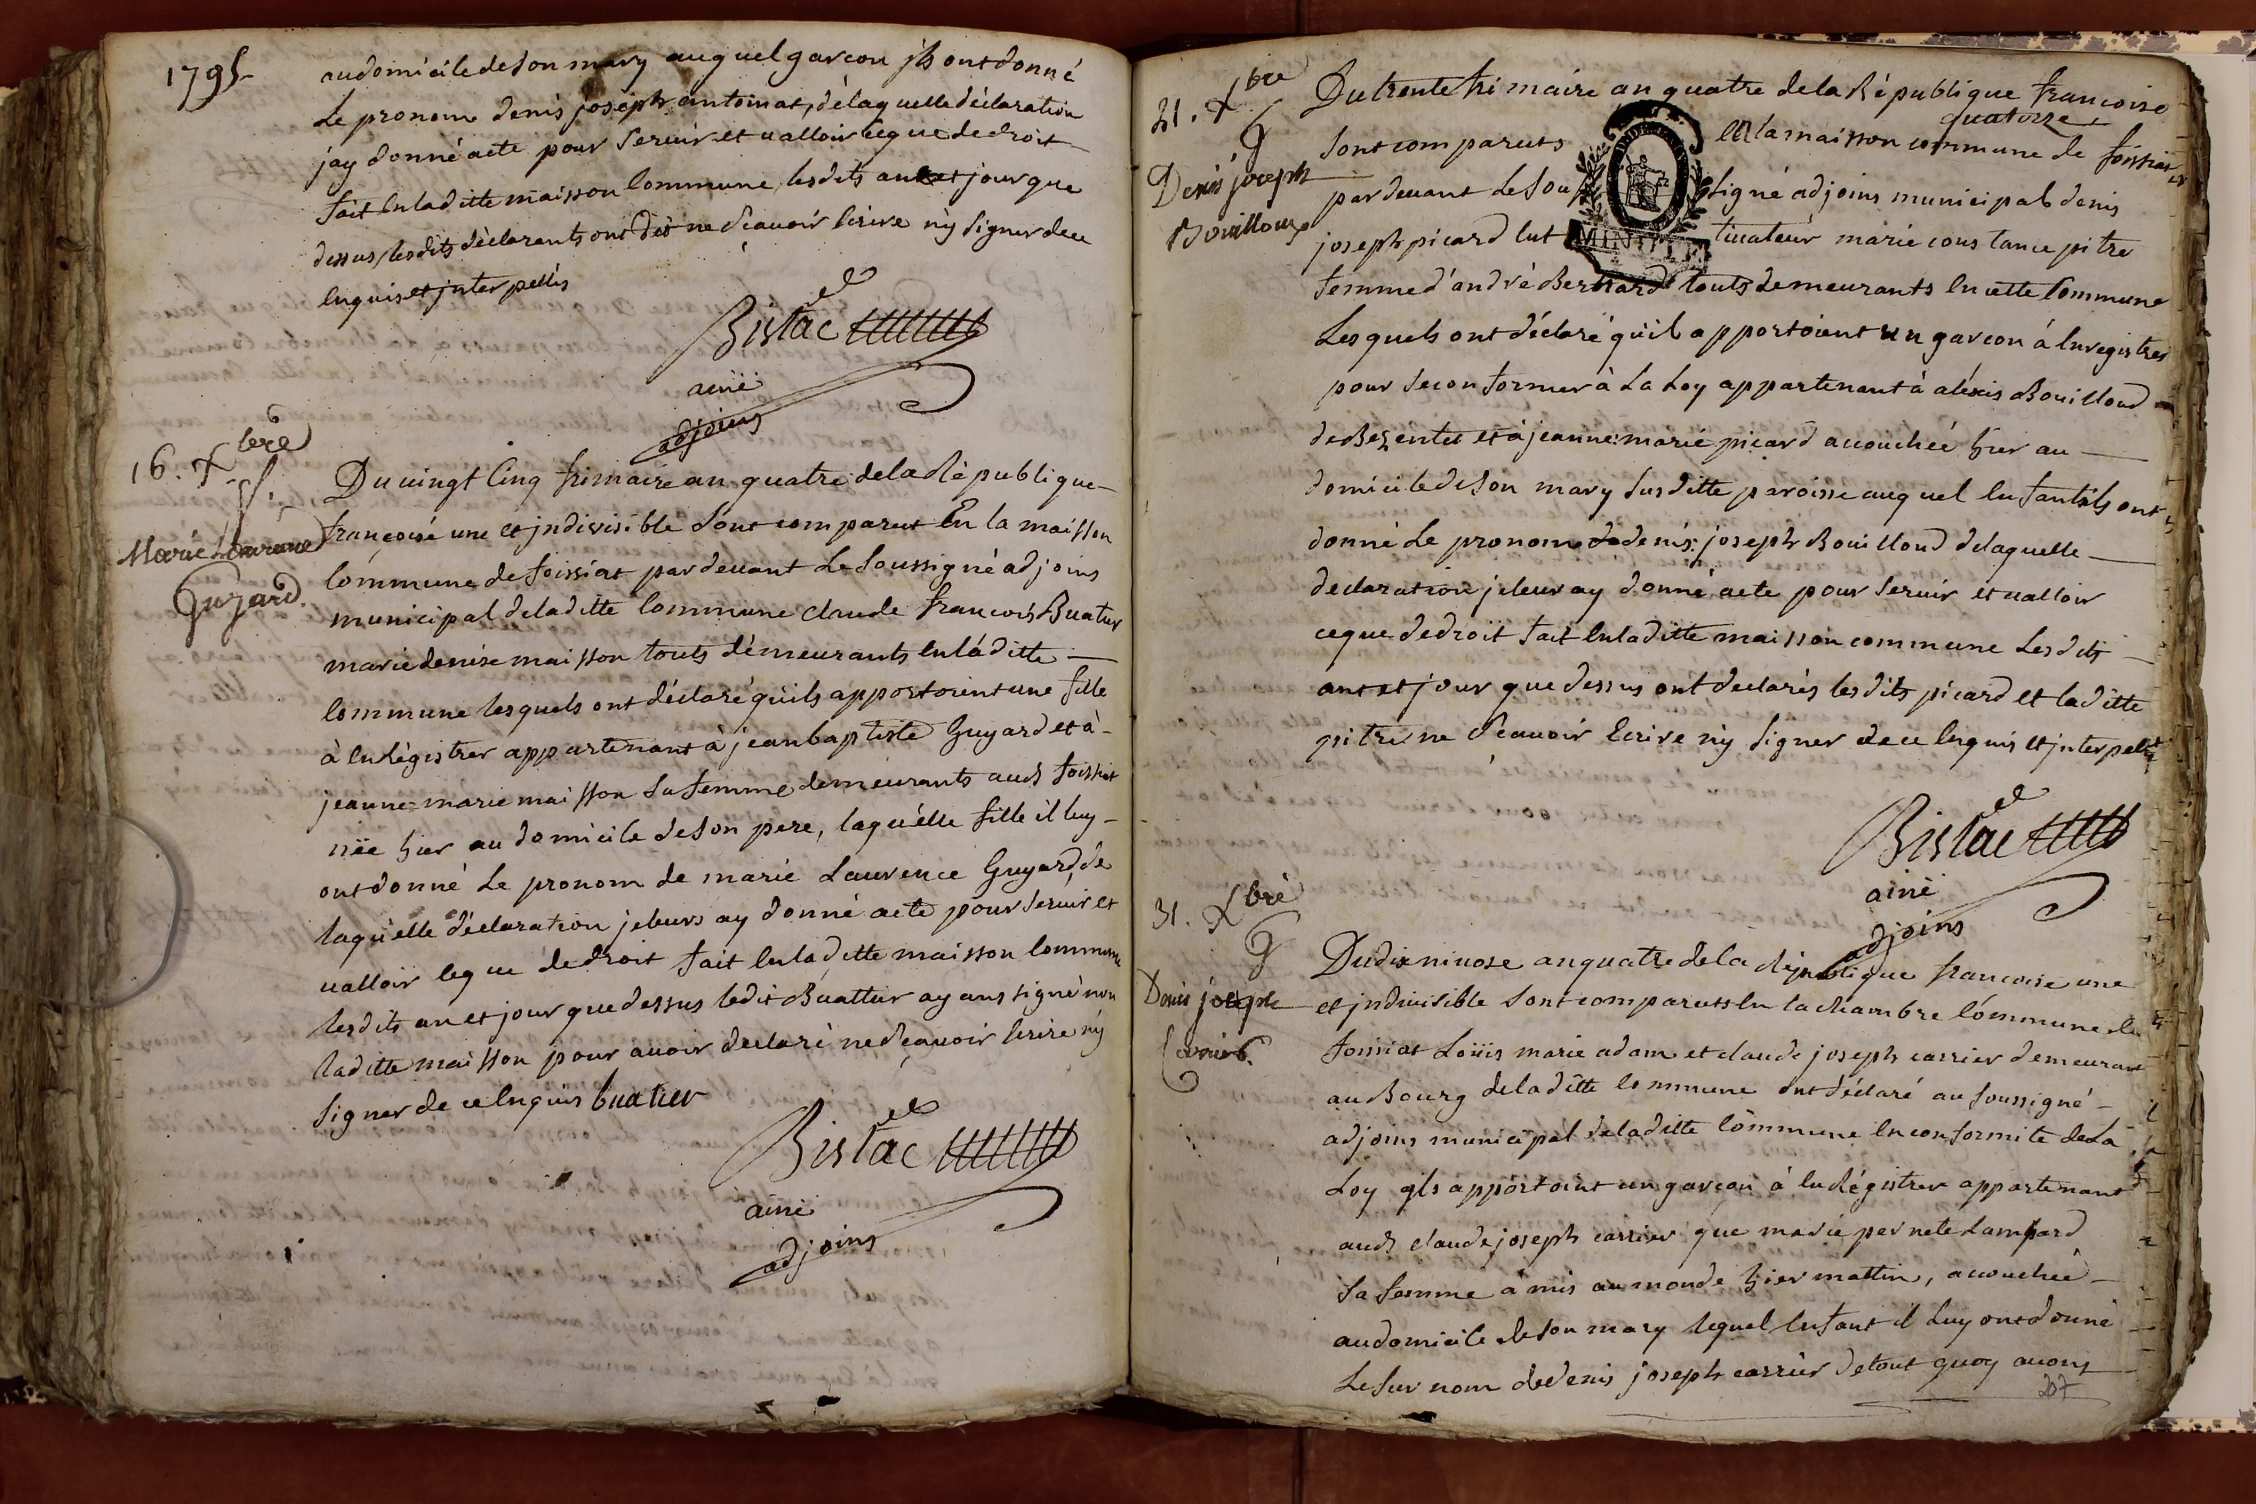 1795
au domicile de son mary auquel garcon jls ont donné
Le pronom denis joseph antoinat, de laquelle déclaration
jay donné acte pour seruir et ualloir ceque de droit
fait En laditte maisson Commune, lesdits an et jour que
dessus, lesdits déclarants ont dit ne sçauoir Ecrire ny signer de ce
Enquis et jnterpellés
Bistac
ainé
adjoins
16. Xbre
Marie Laurence
Guyard.
Du uingt Cinq frimaire an quatre de la République
françoise une et jndivisible sont comparut En la maisson
Commune de foissiat par deuant Le soussigné adjoins
municipal de laditte Commune claude francois Buatier
marie denise maisson touts démeurants En laditte
Commune lesquels ont déclaré quils apportoient une fille
à Enrégistrer appartenant à jean baptiste Guyard et à
jeanne-marie maisson sa femme demeurants aud foissiat
née hier au domicile de son pere, laquélle fille il luy
ont donné Le pronom de marie Laurence Guyard, de
laquélle déclaration je leurs ay donné acte pour seruir et
ualloir ceque de droit fait En laditte maisson Commune
lesdits an et jour que dessus ledit Buattier ayans signé non
laditte maisson pour auoir declaré ne sçauoir Ecrire ny
signer de ce Enquis buatier
Bistac
ainé
adjoins
31. Xbre
Denis joseph
Bouilloux
Du trente frimaire an quatre de la République francoise
quatorze
sont comparuts En la maisson commune de foissiat
par deuant Le sous signé adjoins municipal denis
joseph picard Cul tiuateur marie constance pitre
femme d'andré Bernard touts demeurants En cette Commune
Lesquels ont déclaré quil apportoient un garcon à Enregistrer
pour se conformer à La Loy appartenant à aléxis Bouilloud
de Bezentet et à jeanne-marie picard accouchée hier au
domicile de son mary susditte paroisse auquel Enfant ils ont
donné Le pronom de denis: joseph Bouilloud de laquelle
declaration je leur ay donné acte pour seruir et ualloir
ceque de droit fait En laditte maisson commune Lesdits
ans et jour que dessus ont declarés lesdits picard et laditte
pitre ne sçauoir Ecrire ny signer de ce Enquis et jnterpellés
Bistac
ainé
adjoins
31. Xbre
Denis joseph
Carrier.
Du dix niuose an quatre de la république francoise une
et jndiuisible sont comparuts En la chambre Commune de
foissiat Loüis marie adam et claude joseph carrier demeurant
au Bourg de laditte Commune ont déclaré au soussigné
adjoins municipal de laditte Commune En conformité de La
Loy qls apportoint un garcon à Enrégistrer appartenant
aud claude joseph carrier que marie pernete Lampard
sa femme a mis au monde hier mattin, accouchée
au domicile de son mary lequel Enfant il Luy ont donné
Le sur nom de denis joseph carrier de tout quoy auons
207